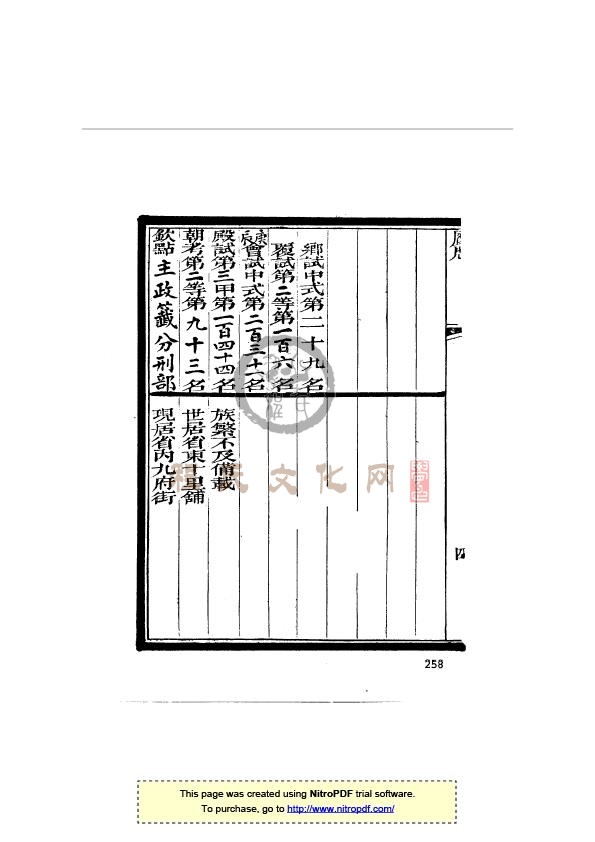 鄉試中式第二十九名
覆試第二等第一百六名
庚辰會試中式第二百三十一名
殿試第三甲第一百四十四名
朝考第二等第九十三名
欽點主政籤分刑部
族繁不及備載
世居省東十里舖
現居省內九府街
四
文化网
258
This page was created using NitroPDF trial software.
To purchase, go to http://www.nitropdf.com/